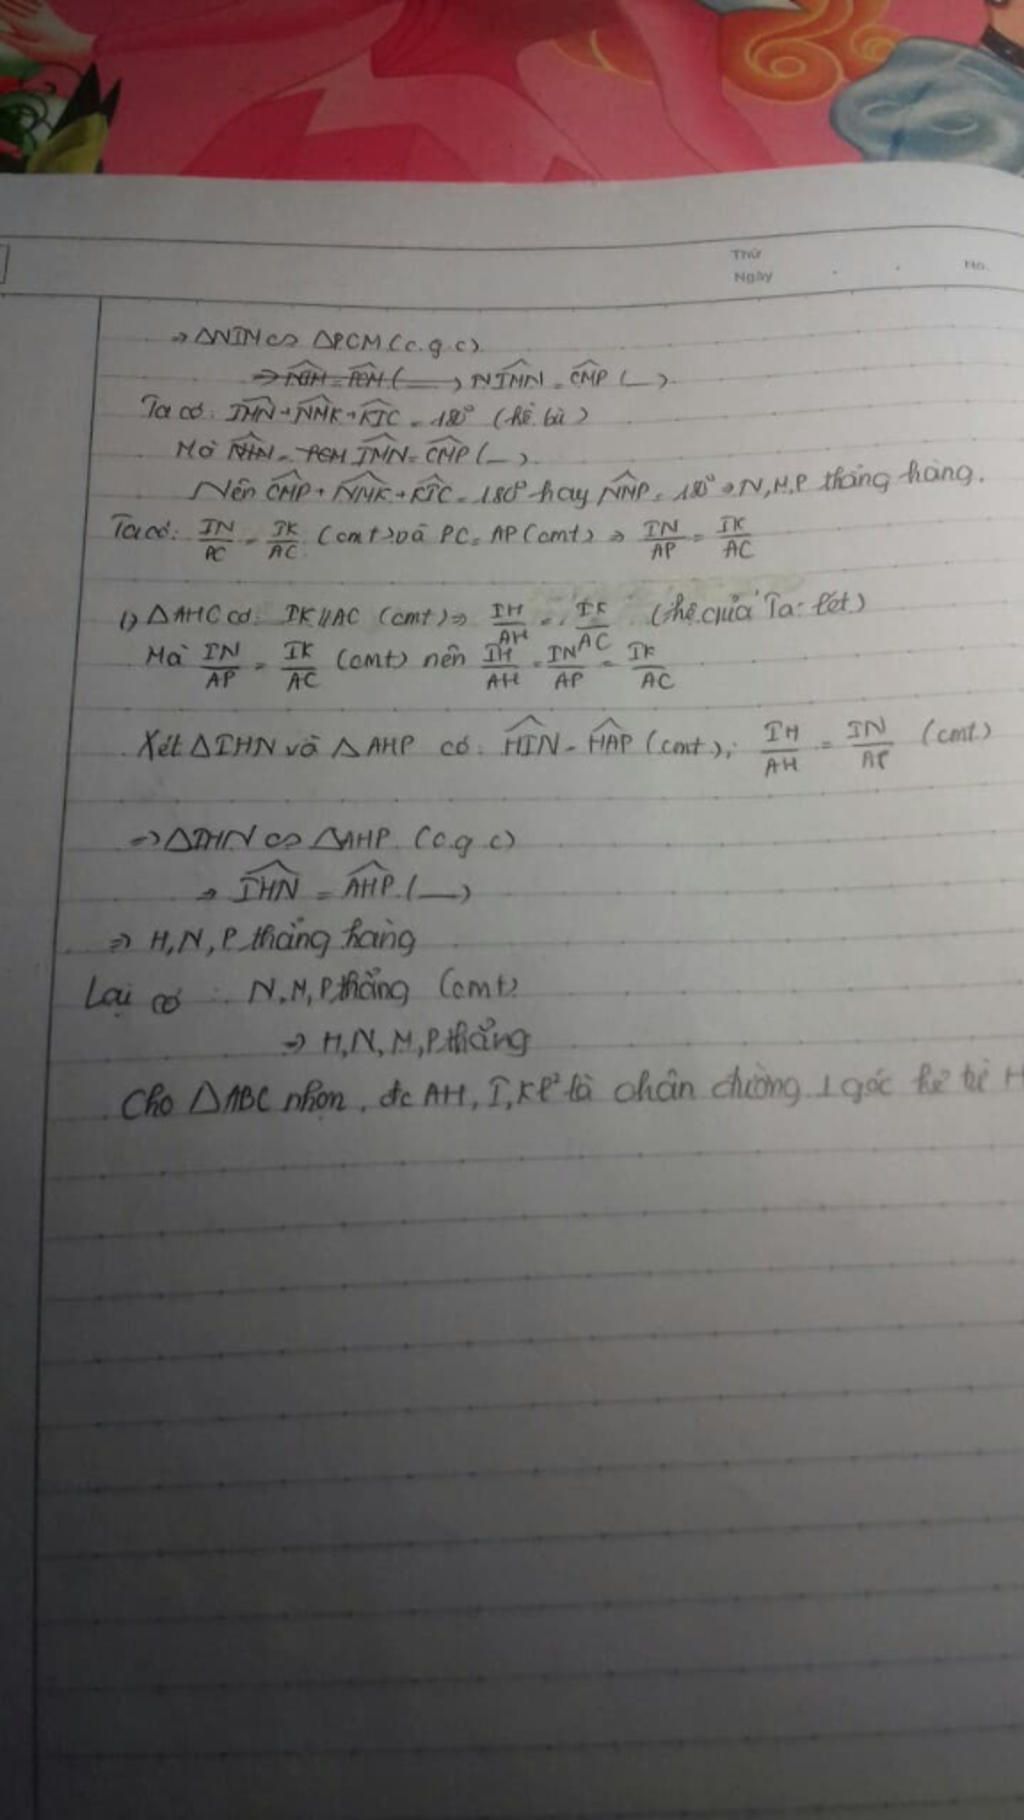 Thứ
Ngày No.
⇒ ΔNIM ∽ ΔPCM (c.g.c)
⇒ NIM = PCM (__) NIMN = CMP (__).
Ta có: IMN + NMK + KIC = 180° (kề bù)
Mà NIN = PCM IMN = CMP (__).
Nên CMP + NMK + KIC = 180° hay NMP = 180° ⇒ N, M, P thẳng hàng.
Ta có: IN/PC = IK/AC (cmt) và PC = AP (cmt) ⇒ IN/AP = IK/AC
1) ΔAHC có: IK // AC (cmt) ⇒ IH/AH = IK/AC (hệ quả Ta-lét)
Mà IN/AP = IK/AC (cmt) nên IH/AH = IN/AP = IK/AC
Xét ΔIHN và ΔAHP có: HIN = HAP (cmt); IH/AH = IN/AP (cmt)
⇒ ΔIHN ∽ ΔAHP (c.g.c)
⇒ IHN = AHP (__)
⇒ H, N, P thẳng hàng
Lại có: N, M, P thẳng (cmt)
⇒ H, N, M, P thẳng
Cho ΔABC nhọn, đc AH, I, K l² là chân đường ⊥ góc kẻ từ H